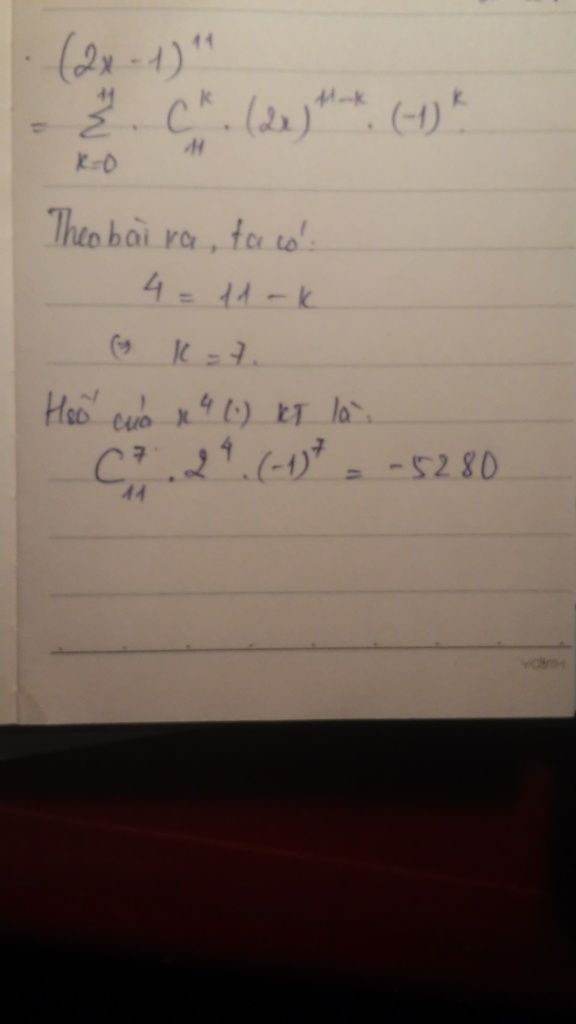 (2x - 1)^11
= Σ_{k=0}^{11} . C_11^k . (2x)^{11-k} . (-1)^k.
Theo bài ra, ta có:
4 = 11 - k
⇔ k = 7.
Hsố của x^4 (.) KT là:
C_11^7 . 2^4 . (-1)^7 = -5280